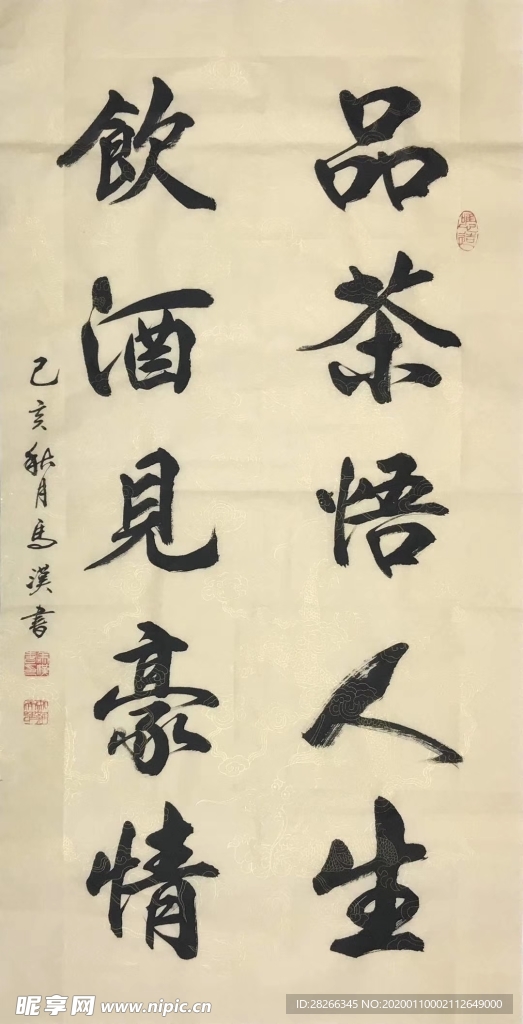 品茶悟人生
飲酒見豪情
己亥秋月馬漢書
昵享网 www.nipic.cn
ID:28266345 NO:20200110002112649000